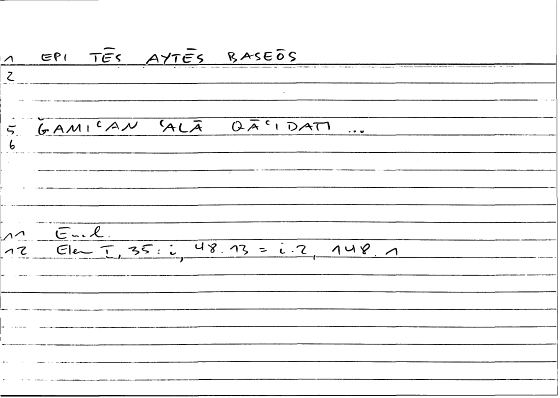 1 EPI TĒS AYTĒS BASEŌS
2
5 ǦAMIʿAN ʿALĀ QĀʿIDATI ...
6
11 Eucl.
12 Elem I, 35: i, 48.13 = i.2, 148.1